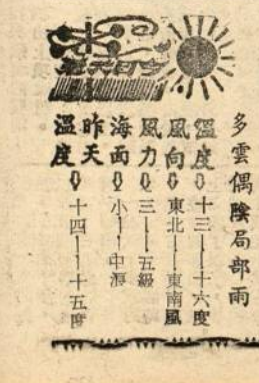 今日天氣
多雲偶陰局部雨
溫度⇨十三——十六度
風向⇨東北——東南風
風力⇨三——五級
海面⇨小——中浪
昨天溫度⇨十四——十五度